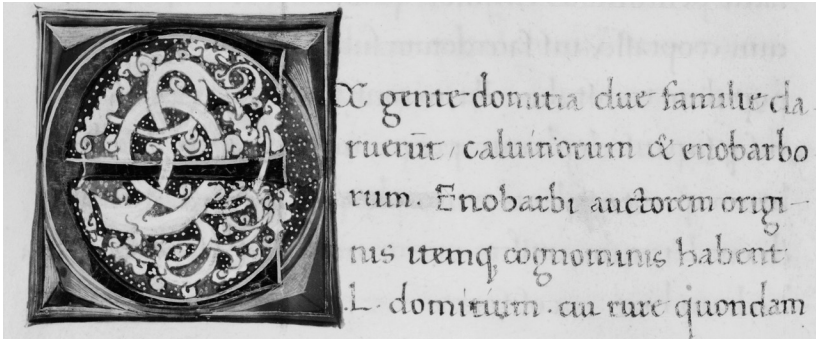 EX gente domitia due familie cla
ruerūt caluinorum & enobarbo
rum. Enobarbi auctorem origi-
nis itemq; cognominis habent
.L. domitium. cui rure quondam